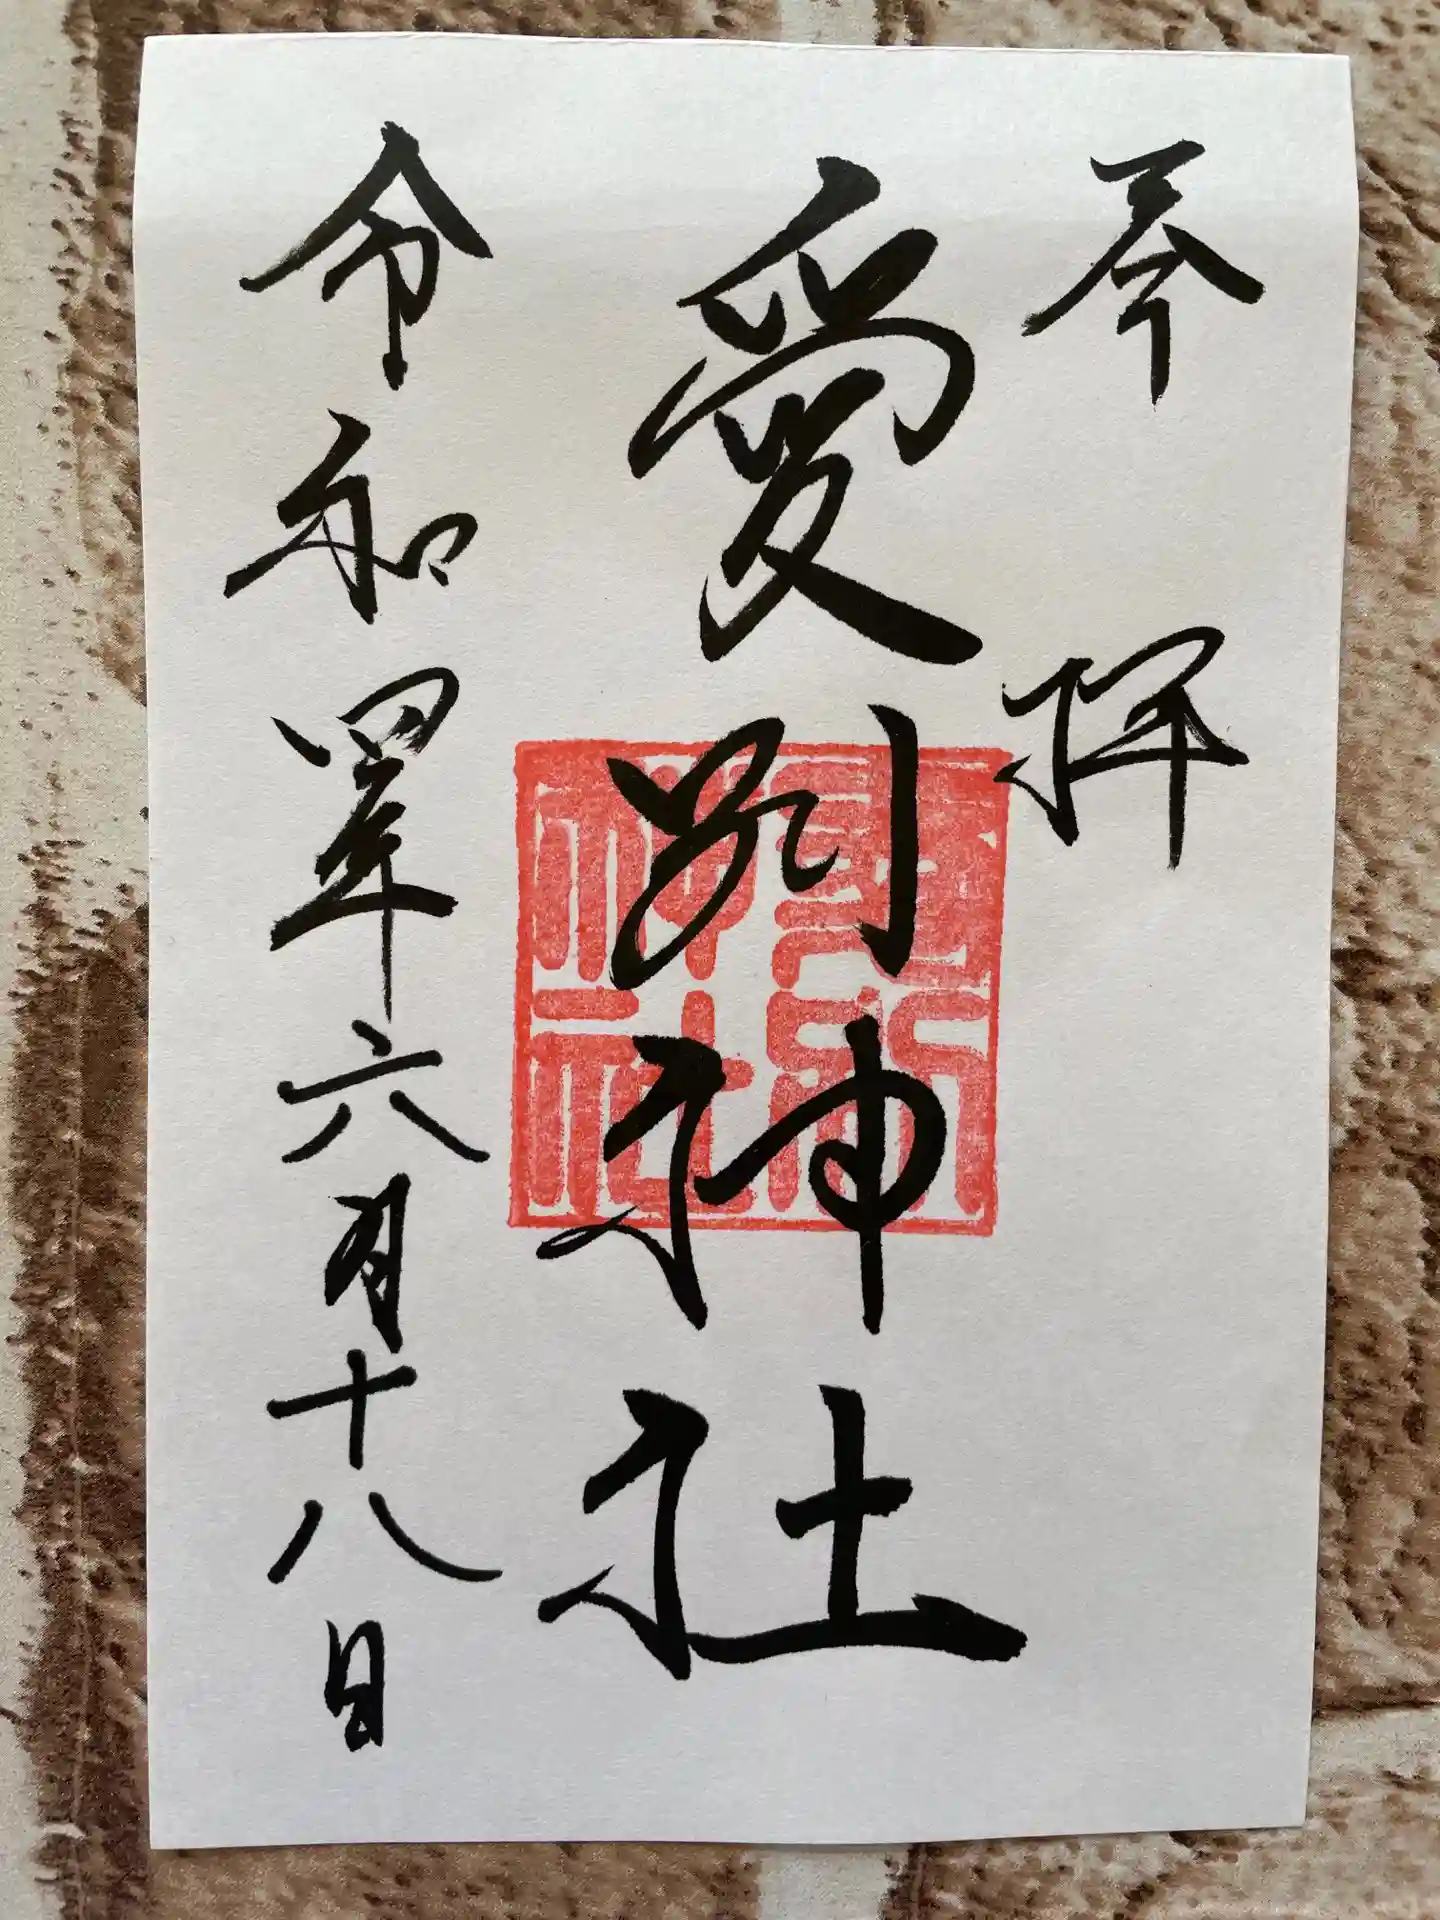 奉拝
愛別神社
愛別神社
令和四年六月十八日